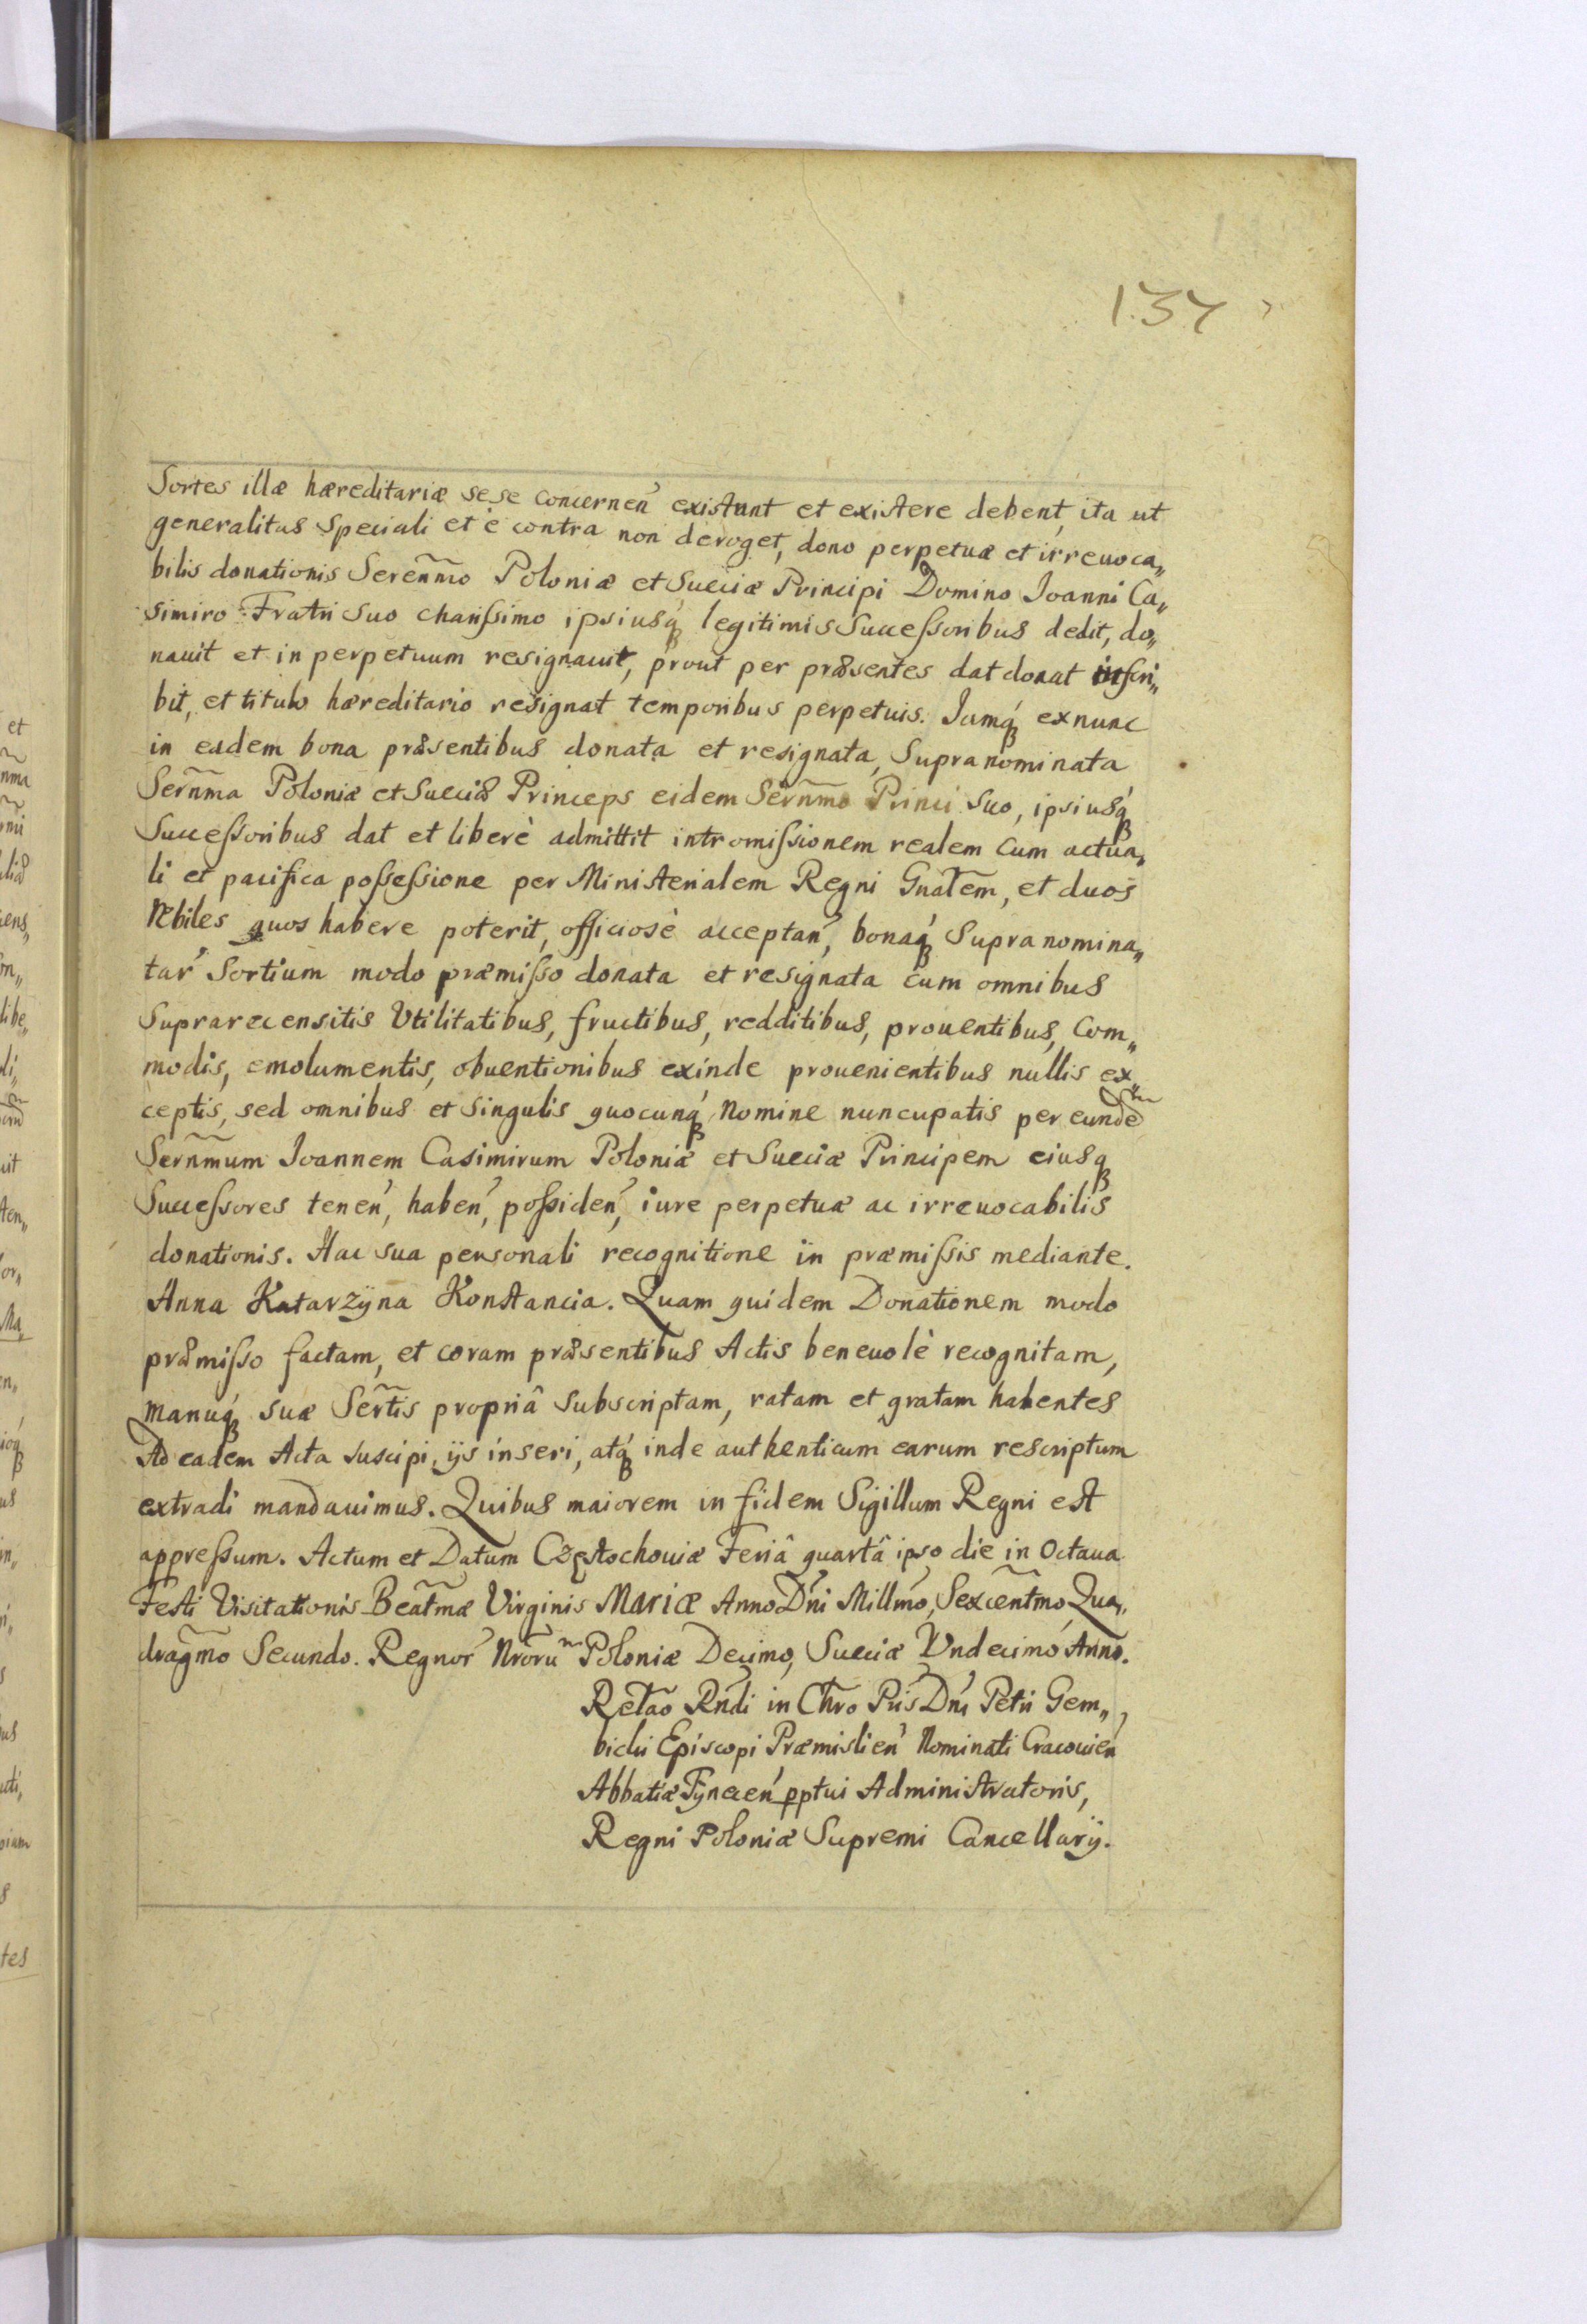 137
Sortes illæ hæreditariæ sese concernen̄ existunt et existere debent, ita ut
generalitas speciali et è contra non deroget, dono perpetuæ et irreuoca„
bilis donationis Sereñmo Poloniæ et Sueciæ Principi Domino Ioanni Ca„
simiro Fratri suo charissimo ipsiusq́ legitimis Successoribus dedit, do„
nauit et in perpetuum resignauit, prout per præsentes dat donat inscri„
bit, et titulo hæreditario resignat temporibus perpetuis. Iamq́ exnunc
in eadem bona præsentibus donata et resignata, Supranominata
Serñma Poloniæ et Sueciæ Princeps eidem Serñmo Princi suo, ipsiusq́
Successoribus dat et liberè admittit intromissionem realem cum actua„
li et pacifica possessione per Ministerialem Regni Gnãlem, et duos
Nobiles quos habere poterit, officiosè acceptan̄, bonaq́ Supranomina„
tar̄ Sortium modo præmisso donata et resignata cum omnibus
Suprarecensitis Vtilitatibus, fructibus, redditibus, prouentibus, Com„
modis, emolumentis, obuentionibus exinde prouenientibus nullis ex„
ceptis, sed omnibus et singulis quocunq́ Nomine nuncupatis per eundem
Serñmum Ioannem Casimirum Poloniæ et Sueciæ Principem eiusq
Successores tenen̄, haben̄, possiden̄, iure perpetuæ ac irreuocabilis
donationis. Hac sua personali recognitione in præmissis mediante.
Anna Katarzÿna Konstancia. Quam quidem Donationem modo
præmisso factam, et coram præsentibus Actis beneuolè recognitam,
manuq́ suæ Ser̃tis propriâ subscriptam, ratam et gratam habentes
Ad eadem Acta suscipi, ijs inseri, atq́ inde authenticum earum rescriptum
extradi mandauimus. Quibus maiorem in fidem Sigillum Regni est
appressum. Actum et Datum Częstochouiæ Feriâ quartâ ipso die in Octaua
Festi Visitationis Beat̃mæ Virginis Mariæ Anno Dn̄i Millm̄o, Sexcent̃mo, Qua„
drag̃mo Secundo. Regnor̄ Nrõrum Poloniæ Decimo, Sueciæ Vndecimo Anno.
Relão Rn̄di in Chr̃o Pr̄is Dn̄i Petri Gem„
bicki Episcopi Præmislien̄ Nominati Cracouien̄
Abbatiæ Tynecen̄ pptui Administratoris,
Regni Poloniæ Supremi Cancellarij.